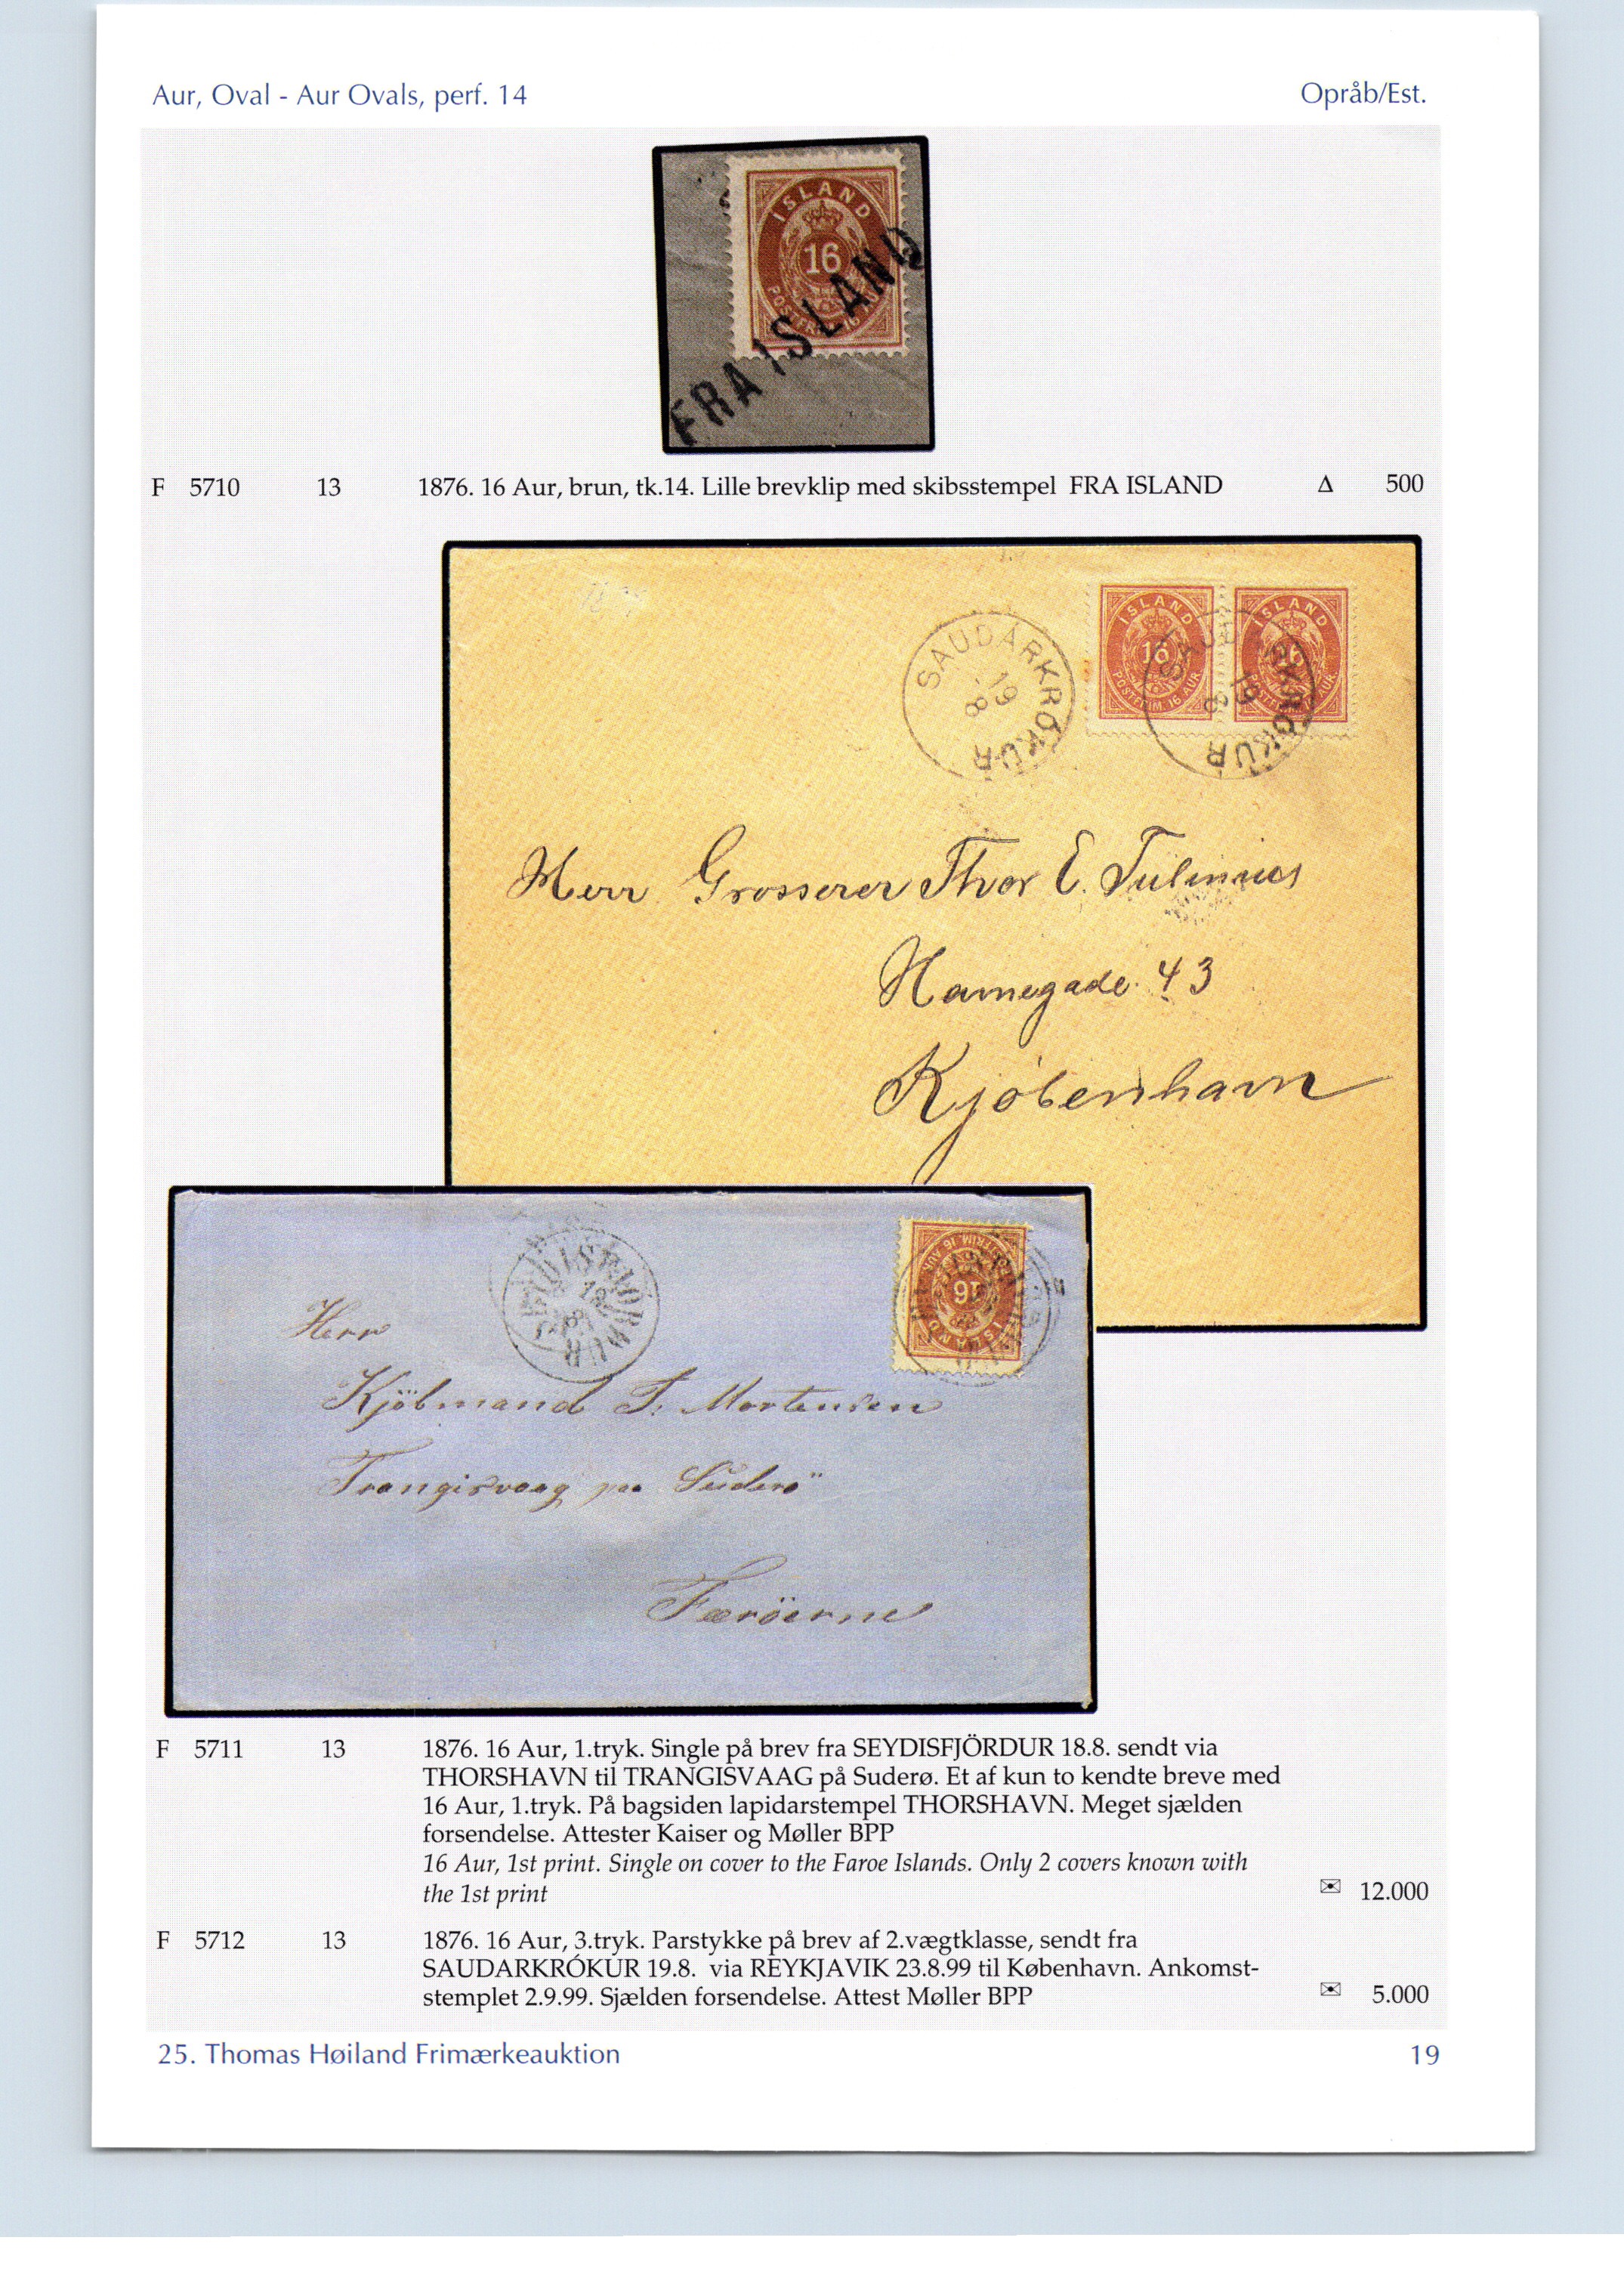 Aur, Oval - Aur Ovals, perf. 14
Opråb/Est.
ÍSLAND
16
POSTFRIM. 16 AUR
FRA ISLAND
F 5710 13 1876. 16 Aur, brun, tk.14. Lille brevklip med skibsstempel FRA ISLAND Δ 500
SAUDÁRKRÓKUR
19
8
ÍSLAND
16
POSTFRIM. 16 AUR
ÍSLAND
16
POSTFRIM. 16 AUR
SAUDÁRKRÓKUR
19
8
Herr Grosserer Thor E. Tulinius
Havnegade 43
Kjöbenhavn
18
8
ÍSLAND
16
POSTFRIM. 16 AUR
Herr
Kjöbmand T. Mortensen
Trangisvaag paa Suderö
Færöerne
F 5711 13 1876. 16 Aur, 1.tryk. Single på brev fra SEYDISFJÖRDUR 18.8. sendt via
THORSHAVN til TRANGISVAAG på Suderø. Et af kun to kendte breve med
16 Aur, 1.tryk. På bagsiden lapidarstempel THORSHAVN. Meget sjælden
forsendelse. Attester Kaiser og Møller BPP
16 Aur, 1st print. Single on cover to the Faroe Islands. Only 2 covers known with
the 1st print ✉ 12.000
F 5712 13 1876. 16 Aur, 3.tryk. Parstykke på brev af 2.vægtklasse, sendt fra
SAUDARKRÓKUR 19.8. via REYKJAVIK 23.8.99 til København. Ankomst-
stemplet 2.9.99. Sjælden forsendelse. Attest Møller BPP ✉ 5.000
25. Thomas Høiland Frimærkeauktion
19